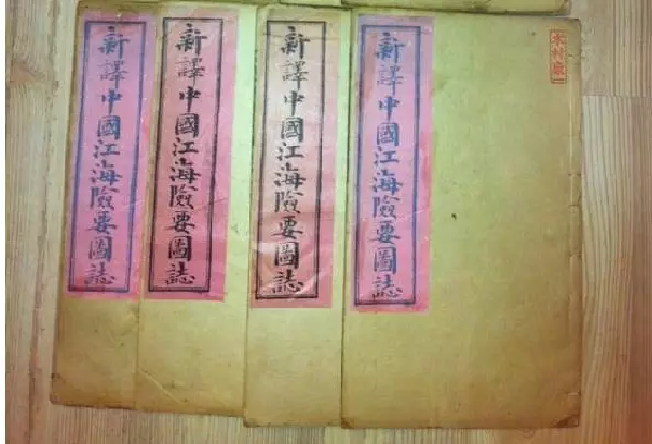 新譯中國江海險要圖誌
新譯中國江海險要圖誌
新譯中國江海險要圖誌
新譯中國江海險要圖誌